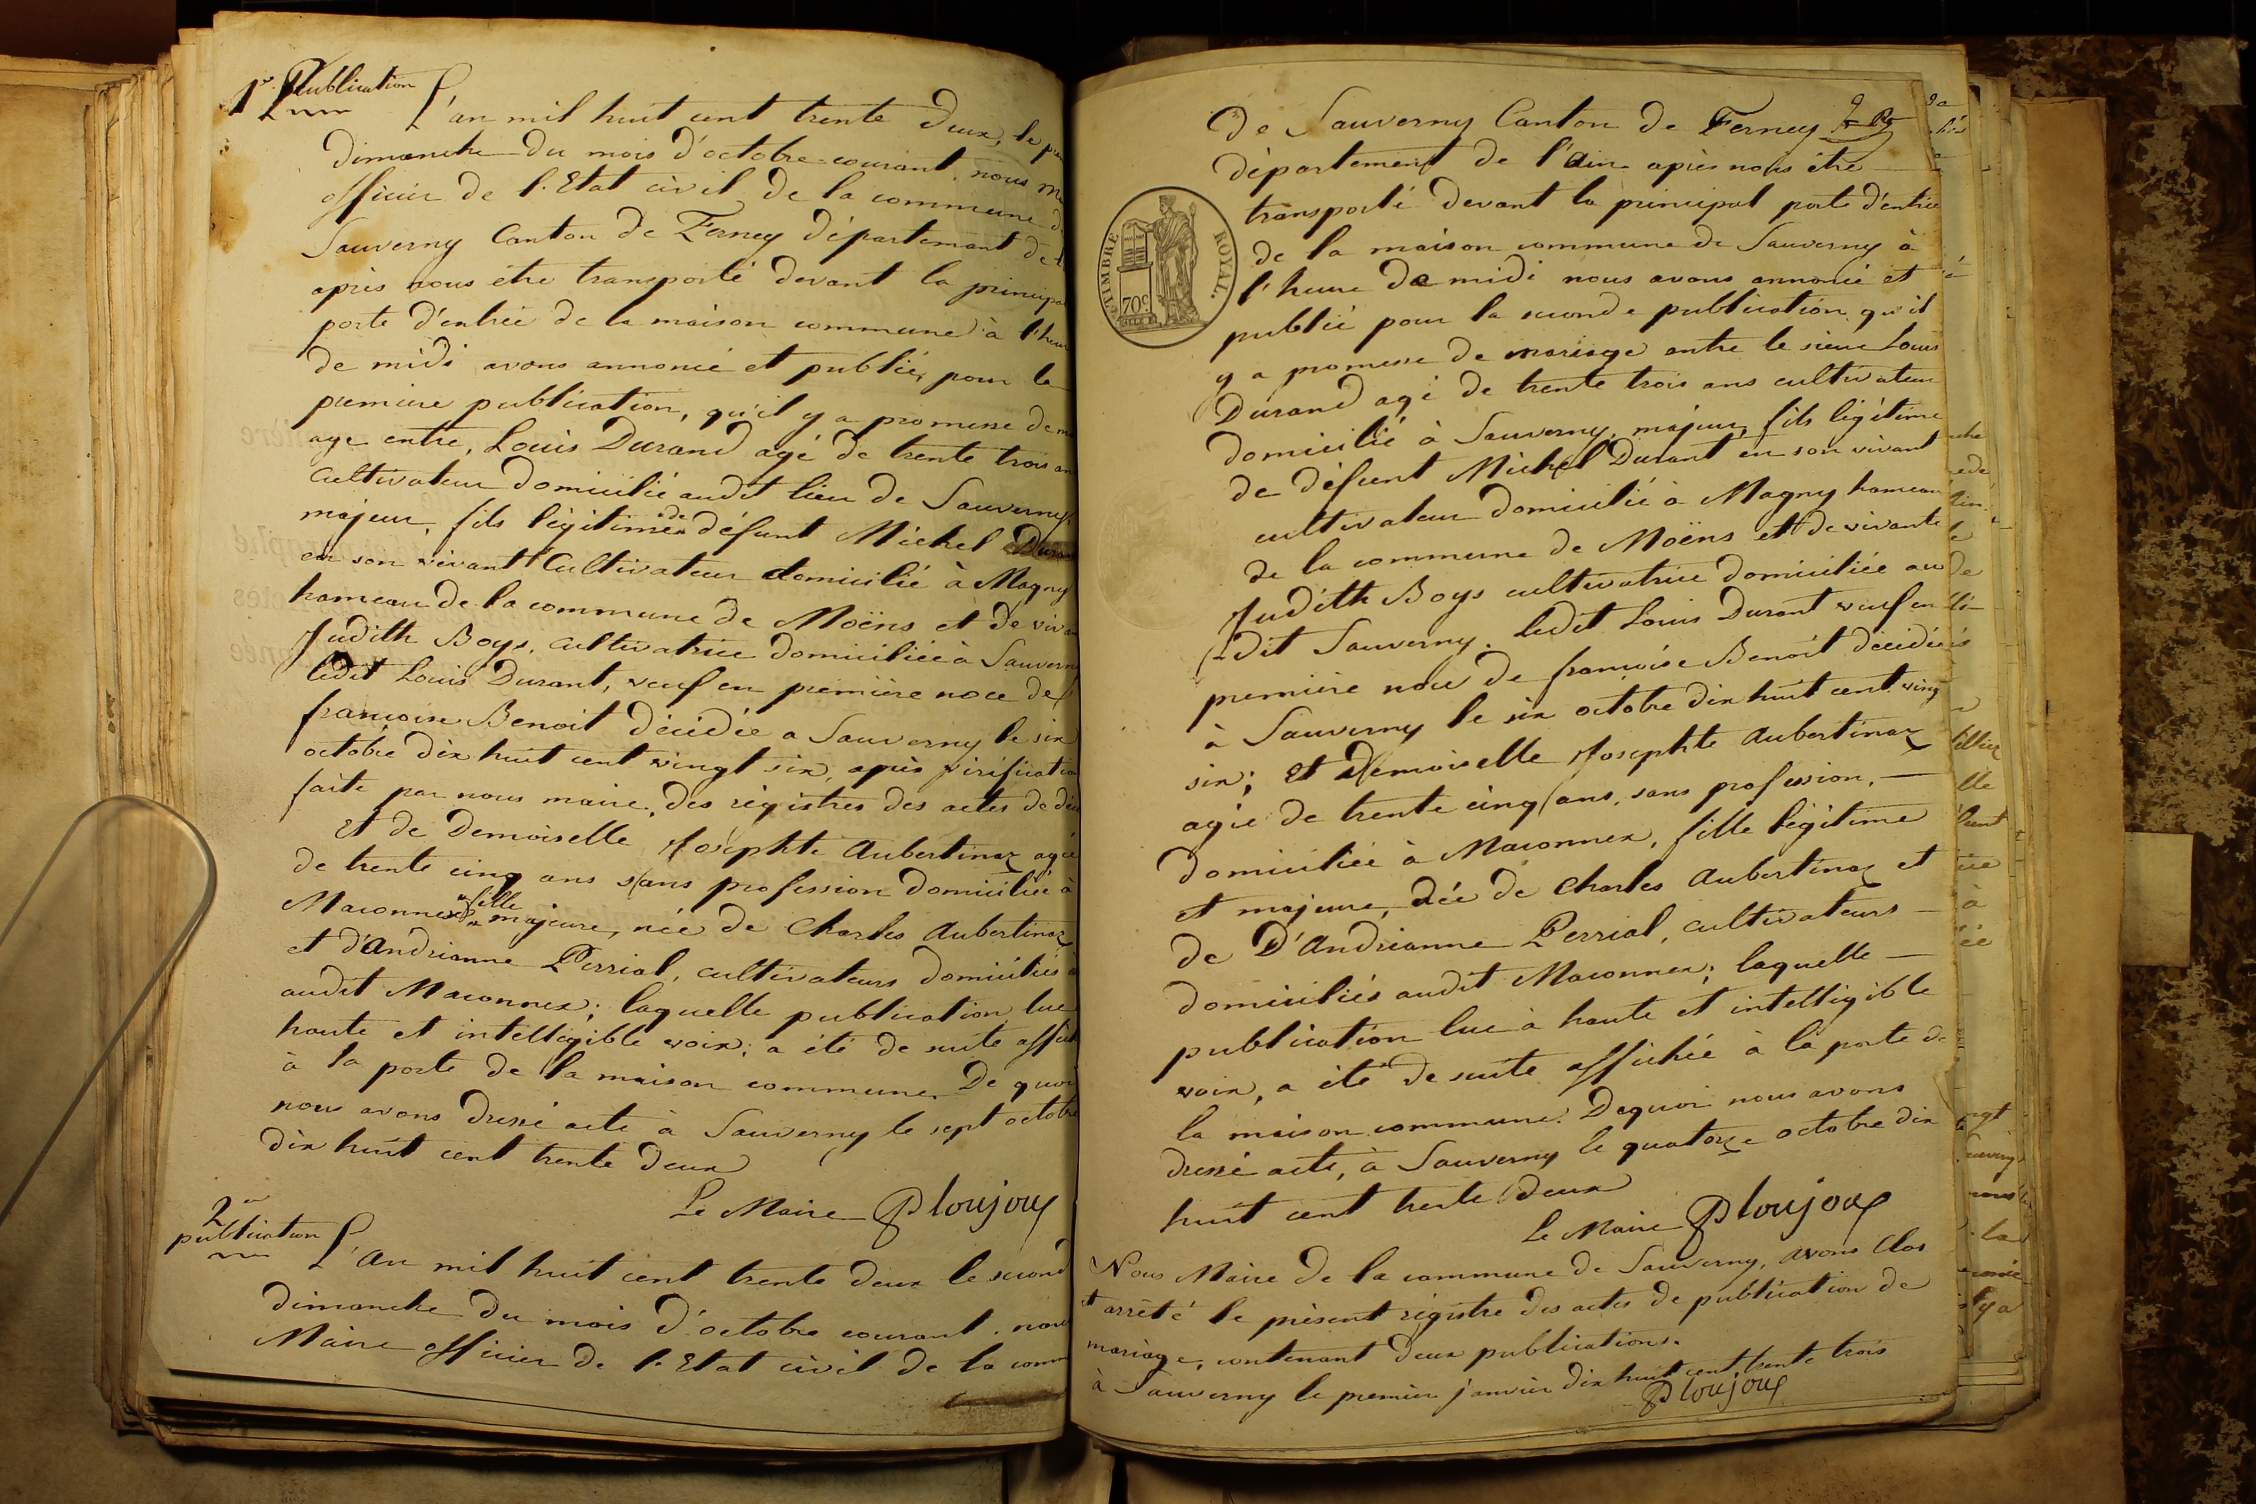 1re Publication
L'an mil huit cent trente deux, le
Dimanche du mois d'octobre courant, nous
officier de l'Etat civil de la commune
Sauverny Canton de Ferney département de
après nous être transporté devant la principal
porte d'entrée de la maison commune à l'heur
de midi avons annoncé et publié, pour la
première publication, qu'il y a promesse de
age entre, Louis Durand agé de trente trois an
Cultivateur domicilié audit lieu de Sauverny,
majeur, fils légitime de défunt Michel Duran
en son vivant Cultivateur domicilié à Magny
hameau de la commune de Moëns et de vivan
Judith Boys, cultivatrice domiciliée à Sauvern
ledit Louis Durant, veuf en première noce de
francoise Benoit décédée a Sauverny le six
octobre dix huit cent vingt six, après vérificatio
faite par nous maire, des régistres des actes de
Et de Demoiselle Josephte Aubertinaz agée
de trente cinq ans sans profession domiciliée à
Maconnex fille majeure, née de Charles Aubertinaz
et d'Andrianne Perrial, cultivateurs domiciliés
audit Maconnex; laquelle publication lue
haute et intelligible voix; a été de suite affich
à la porte de la maison commune. De quoi
nous avons dressé acte à Sauverny le sept octobre
dix huit cent trente deux
Le Maire Ploujoux
2me
publication
L'an mil huit cent trente deux le second
dimanche du mois d'octobre courant, nous
Maire officier de l'Etat civil de la comm
de Sauverny Canton de Ferney
département de l'ain après nous être
transporté devant la principal porte d'entrée
de la maison commune de Sauverny à
l'heure de midi nous avons annoncé et
publié pour la seconde publication qu'il
y a promesse de mariage entre le sieur Louis
Durand agé de trente trois ans cultivateur
domicilié à Sauverny, majeur, fils légitime
de défunt Michel Durant en son vivant
cultivateur domicilié à Magny hameau
de la commune de Moëns et de vivante
Judith Boys cultivatrice domiciliée au
dit Sauverny. ledit Louis Durant veuf en
première noce de françoise Benoit décédée
à Sauverny le six octobre dix huit cent ving
six; Et Demoiselle Josephte Aubertinaz
agée de trente cinq ans, sans profession,
domiciliée à Maconnex, fille légitime
et majeure, née de Charles Aubertinaz et
de D'Andrianne Perrial, cultivateurs
domiciliés audit Maconnex; laquelle
publication lue à haute et intelligible
voix, a été de suite affichée à la porte de
la maison commune. Dequoi nous avons
dressé acte, à Sauverny le quatorze octobre dix
huit cent trente deux
Le Maire Ploujoux
Nous Maire de la commune de Sauverny, avons Clos
et arrêté le présent régistre des actes de publication de
mariage, contenant deux publications.
à Sauverny le premier janvier dix huit cent trente trois
Ploujoux
TIMBRE ROYAL.
70c